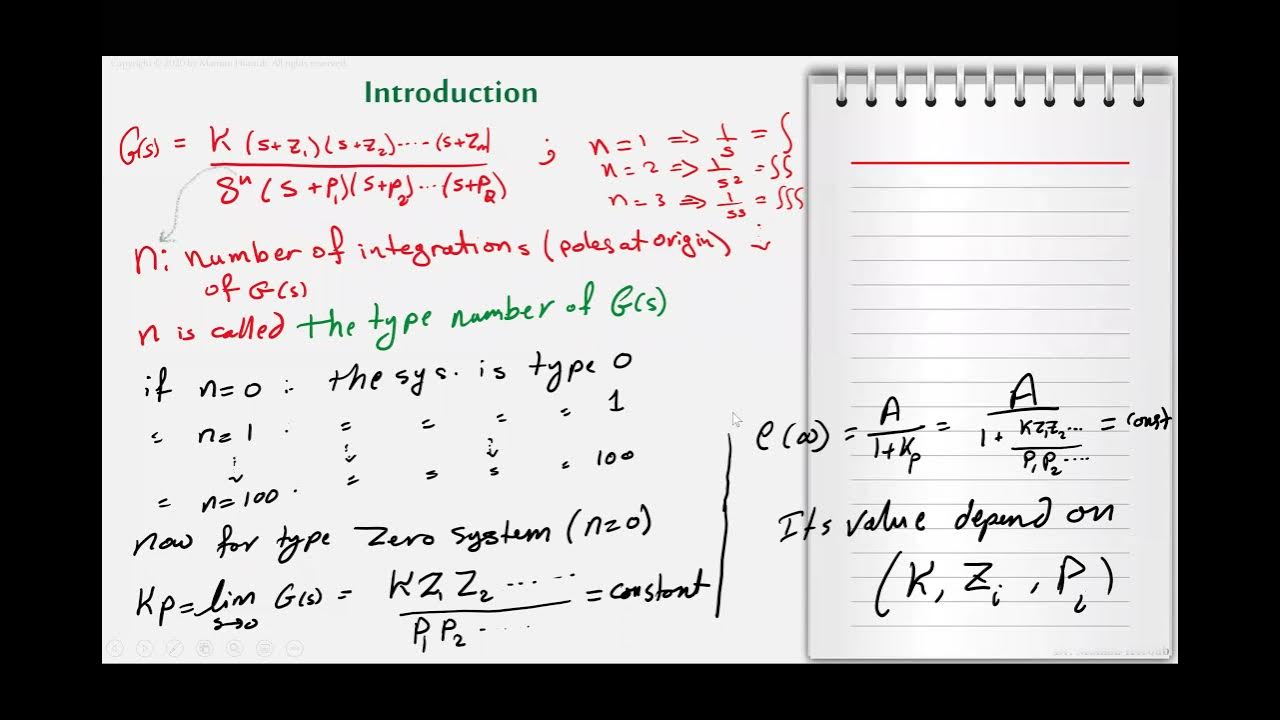 Copyright © 2020 by Mamun Hiasat. All rights reserved.
Introduction
G(s) = K (s+Z₁)(s+Z₂)....(s+Zm) / Sⁿ (s+P₁)(s+P₂)...(s+PQ) ; n=1 => 1/s = ∫
n=2 => 1/s² = ∫∫
n=3 => 1/s³ = ∫∫∫
n: number of integrations (poles at origin)
of G(s)
n is called the type number of G(s)
if n=0 : the sys. is type 0
= n=1 . = = = = 1
= n=100 . = = = = 100
now for type Zero system (n=0)
Kp = lim s→0 G(s) = K Z₁ Z₂ ...... / P₁ P₂ ..... = constant
e(∞) = A / 1+Kp = A / 1 + KZ₁Z₂... / P₁P₂.... = const
Its value depend on
(K, Zi, Pi)